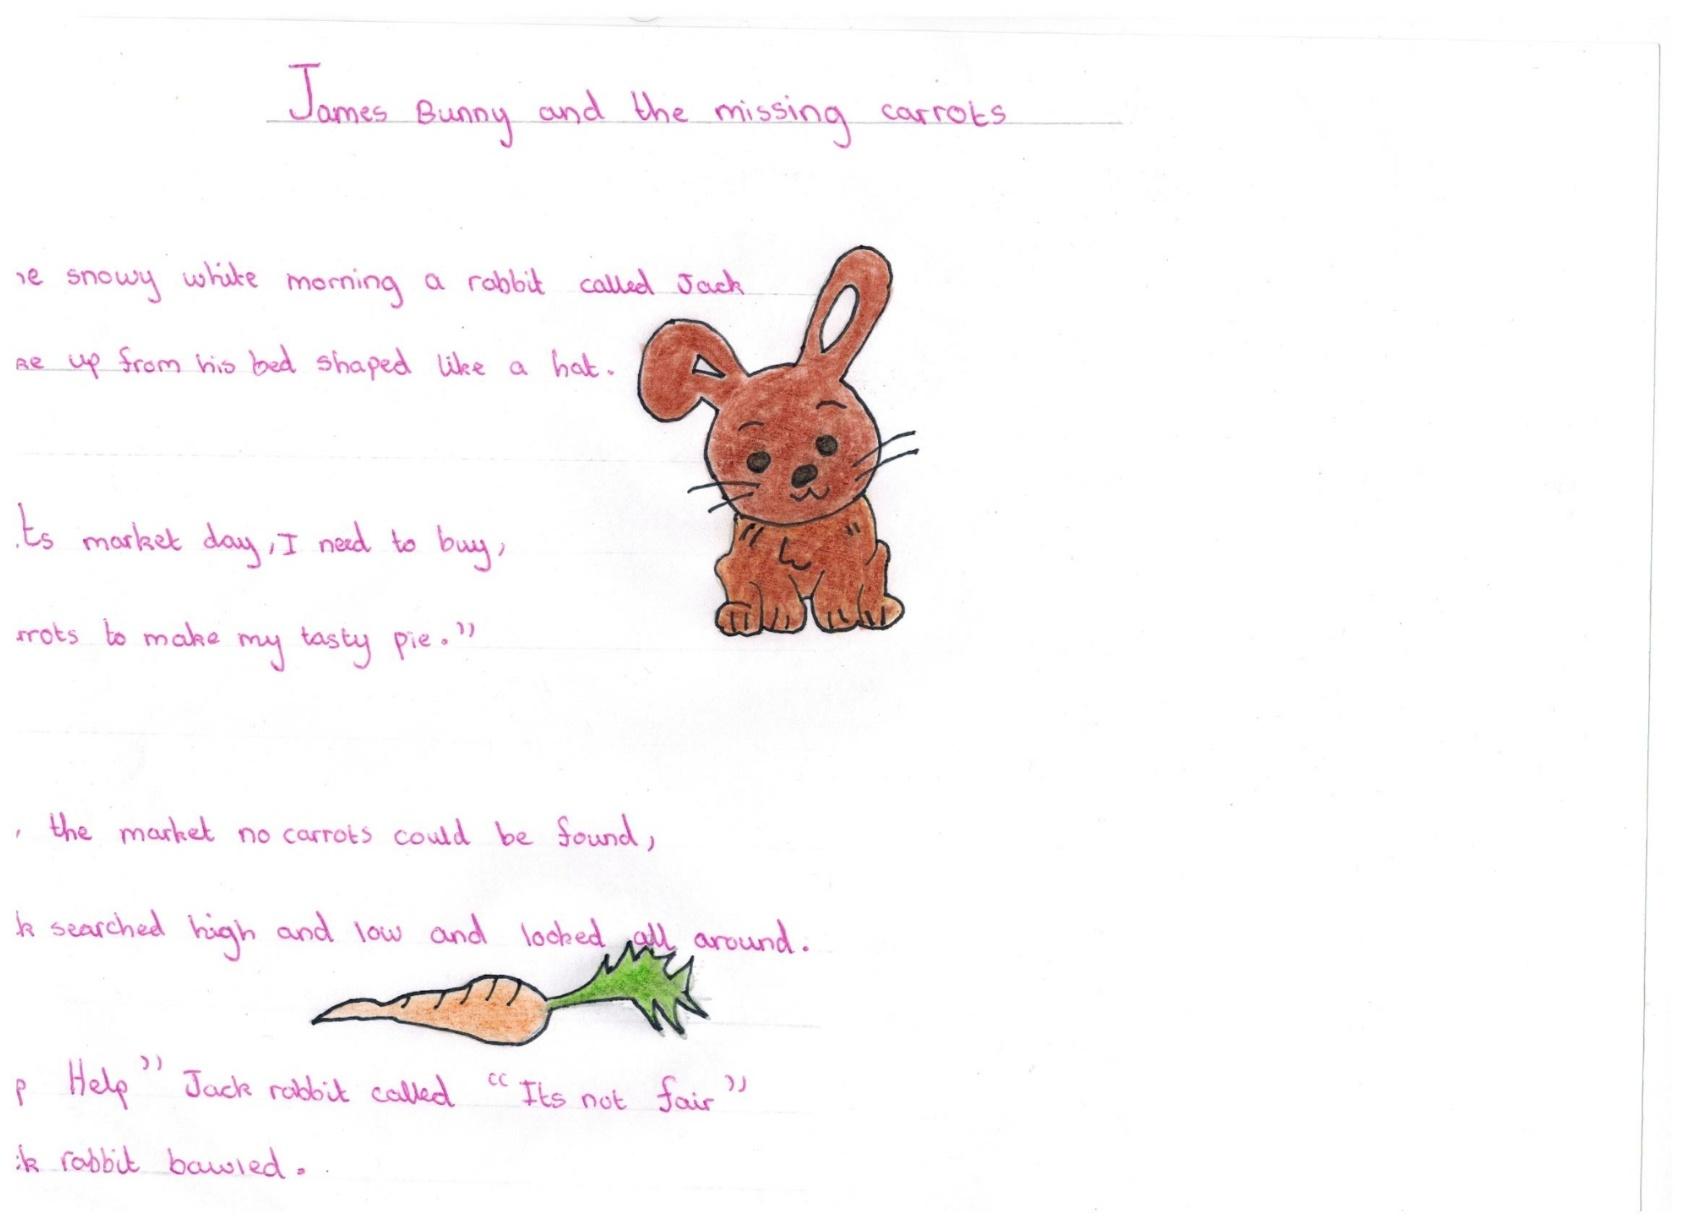 James Bunny and the missing carrots
snowy white morning a rabbit called Jack
up from his bed shaped like a hat.
market day, I need to buy,
to make my tasty pie.”
the market no carrots could be found,
searched high and low and looked all around.
Help” Jack rabbit called “Its not fair”
rabbit bawled.